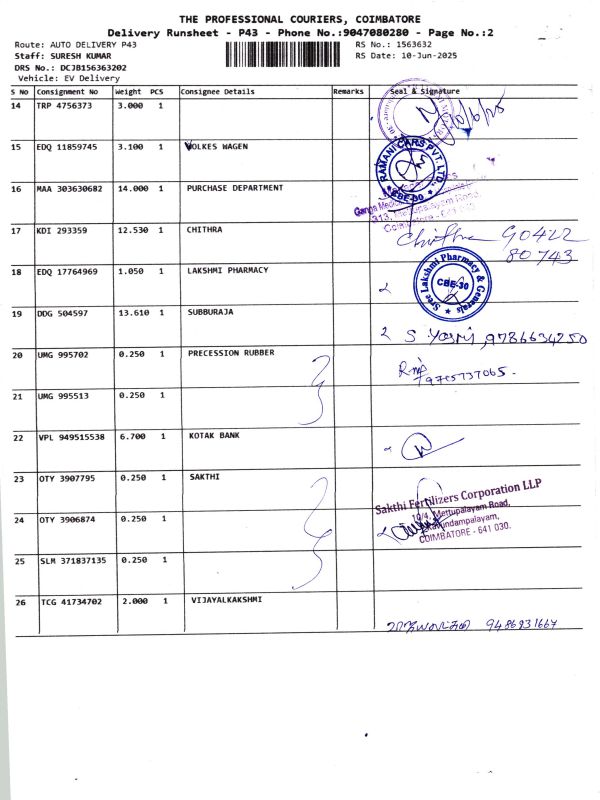 THE PROFESSIONAL COURIERS, COIMBATORE
Delivery Runsheet - P43 - Phone No.:9047080280 - Page No.:2
Route: AUTO DELIVERY P43
RS No.: 1563632
Staff: SURESH KUMAR
RS Date: 10-Jun-2025
DRS No.: DCJB156363202
Vehicle: EV Delivery
S No Consignment No Weight PCS Consignee Details Remarks Seal & Signature
14 TRP 4756373 3.000 1
10/6/25
15 EDQ 11859745 3.100 1 VOLKES WAGEN
RAMANI CARS PVT. LTD. CBE-30
16 MAA 303630682 14.000 1 PURCHASE DEPARTMENT
17 KDI 293359 12.530 1 CHITHRA
Chithra 90422
80743
18 EDQ 17764969 1.050 1 LAKSHMI PHARMACY
Sree Lakshmi Pharmacy & Generals CBE-30
19 DDG 504597 13.610 1 SUBBURAJA
9786634250
20 UMG 995702 0.250 1 PRECESSION RUBBER
21 UMG 995513 0.250 1
22 VPL 949515538 6.700 1 KOTAK BANK
23 OTY 3907795 0.250 1 SAKTHI
Sakthi Fertilizers Corporation LLP
10/4, Mettupalayam Road,
24 OTY 3906874 0.250 1
COIMBATORE - 641 030.
25 SLM 371837135 0.250 1
26 TCG 41734702 2.000 1 VIJAYALKAKSHMI
9486931667